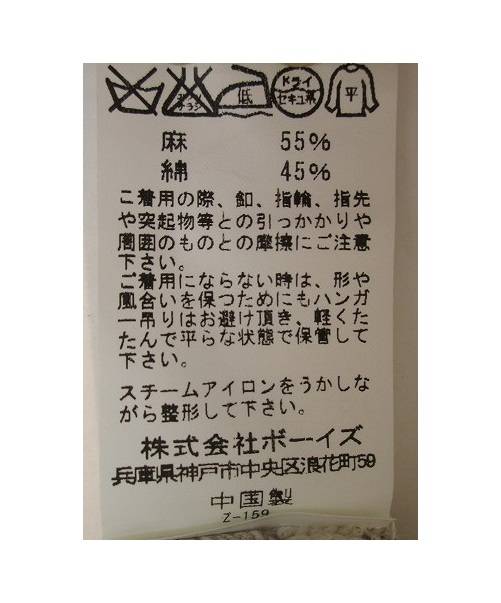 エンソ
サラシ
低
ドライ
セキユ系
平
麻 55%
綿 45%
ご着用の際、釦、指輪、指先
や突起物等との引っかかりや
周囲のものとの摩擦にご注意
下さい。
ご着用にならない時は、形や
風合いを保つためにもハンガ
ー吊りはお避け頂き、軽くた
たんで平らな状態で保管して
下さい。
スチームアイロンをうかしな
がら整形して下さい。
株式会社ボーイズ
兵庫県神戸市中央区浪花町59
中国製
Z-159